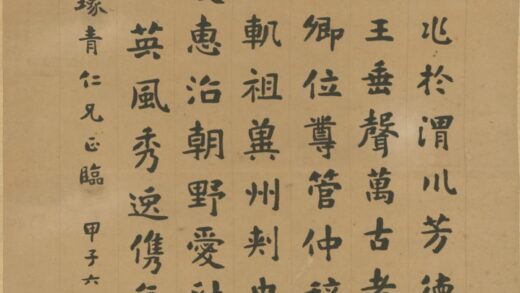 兆於渭川芳德
王垂聲萬古
卿位尊管仲
軌祖冀州刺史
惠治朝野愛
英風秀逸儁
琢青仁兄正臨 甲子六